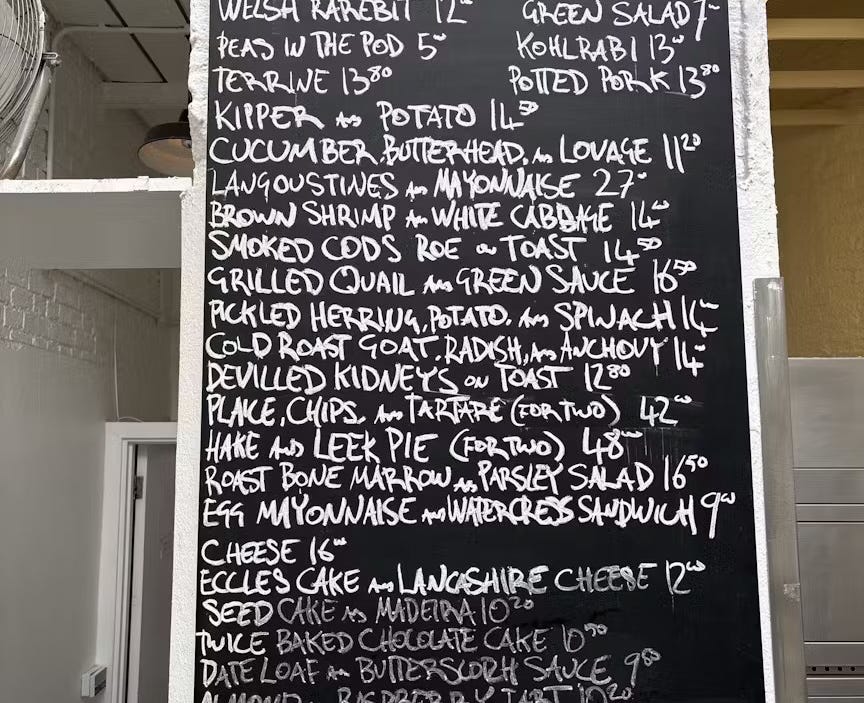 WELSH RAREBIT 12 GREEN SALAD 7
PEAS IN THE POD 5 KOHLRABI 13
TERRINE 13 80 POTTED PORK 13 80
KIPPER AND POTATO 14 50
CUCUMBER, BUTTERHEAD, AND LOVAGE 11 20
LANGOUSTINES AND MAYONNAISE 27
BROWN SHRIMP AND WHITE CABBAGE 14
SMOKED CODS ROE ON TOAST 14 50
GRILLED QUAIL AND GREEN SAUCE 16 50
PICKLED HERRING, POTATO, AND SPINACH 14
COLD ROAST GOAT, RADISH, AND ANCHOVY 14
DEVILLED KIDNEYS ON TOAST 12 80
PLAICE, CHIPS, AND TARTARE (FOR TWO) 42 00
HAKE AND LEEK PIE (FOR TWO) 48 00
ROAST BONE MARROW AND PARSLEY SALAD 16 50
EGG MAYONNAISE AND WATERCRESS SANDWICH 9 00
CHEESE 16
ECCLES CAKE AND LANCASHIRE CHEESE 12 00
SEED CAKE AND MADEIRA 10 20
TWICE BAKED CHOCOLATE CAKE 10
DATE LOAF AND BUTTERSCOTCH SAUCE 9
ALMOND RASPBERRY TART 10 20